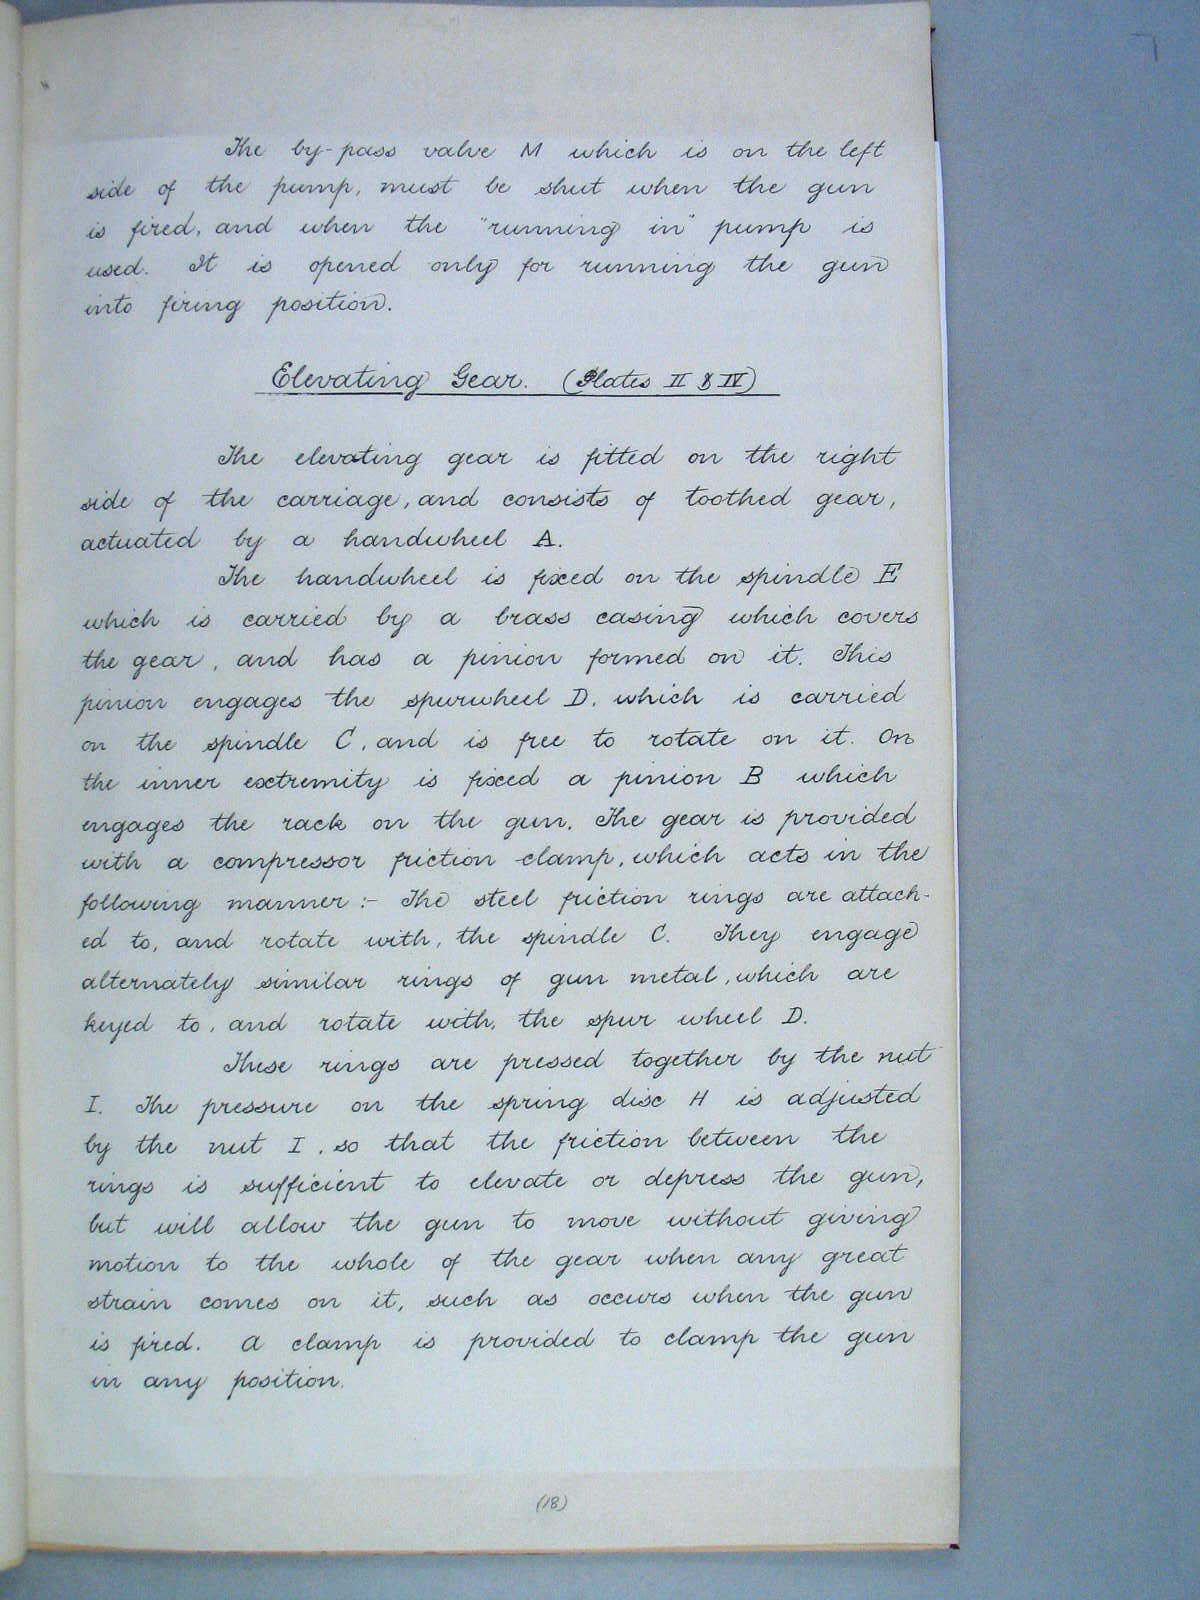 The by-pass valve M which is on the left
side of the pump, must be shut when the gun
is fired, and when the "running in" pump is
used. It is opened only for running the gun
into firing position.
Elevating Gear. (Plates II & IV)
The elevating gear is fitted on the right
side of the carriage, and consists of toothed gear,
actuated by a handwheel A.
The handwheel is fixed on the spindle E
which is carried by a brass casing which covers
the gear, and has a pinion formed on it. This
pinion engages the spurwheel D, which is carried
on the spindle C, and is free to rotate on it. On
the inner extremity is fixed a pinion B which
engages the rack on the gun. The gear is provided
with a compressor friction clamp, which acts in the
following manner :- The steel friction rings are attach-
ed to, and rotate with, the spindle C. They engage
alternately similar rings of gun metal, which are
keyed to, and rotate with, the spur wheel D.
These rings are pressed together by the nut
I. The pressure on the spring disc H is adjusted
by the nut I, so that the friction between the
rings is sufficient to elevate or depress the gun,
but will allow the gun to move without giving
motion to the whole of the gear when any great
strain comes on it, such as occurs when the gun
is fired. A clamp is provided to clamp the gun
in any position.
(18)